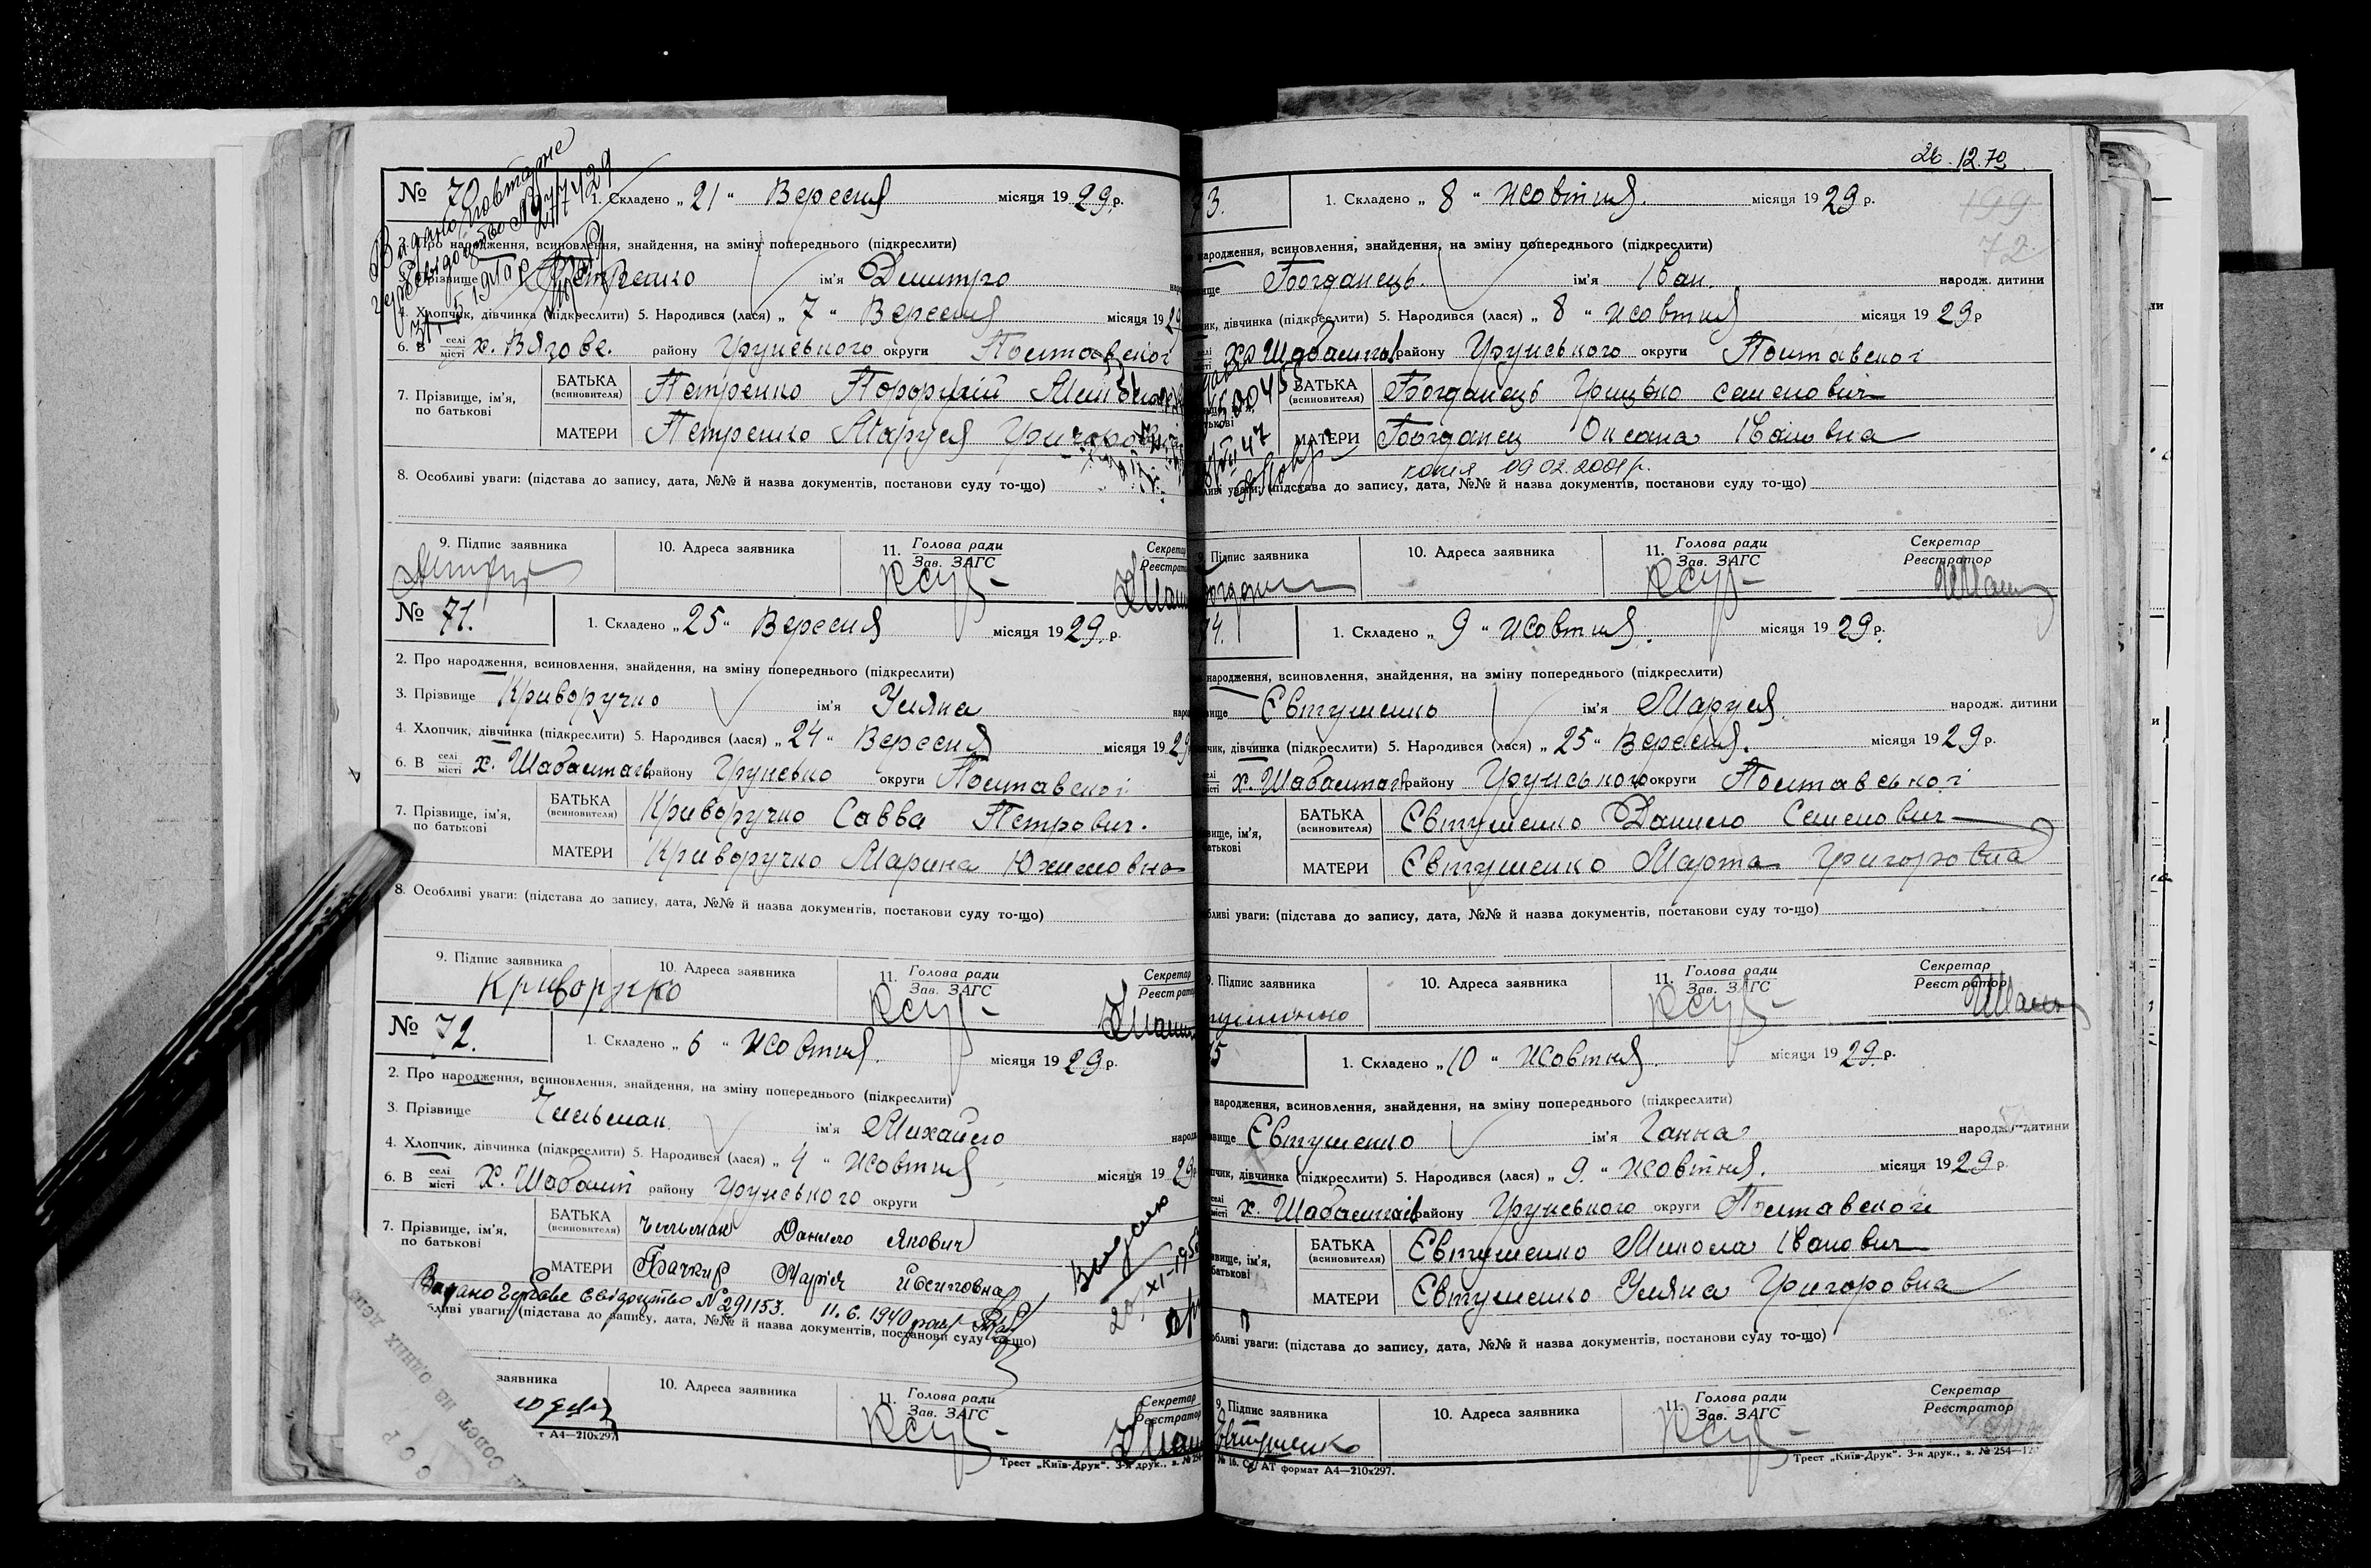 № 70
1. Складено „ 21 “ Вересня місяця 19 29 р.
2. Про народження, всиновлення, знайдення, на зміну попереднього (підкреслити)
Прізвище Петренко ім'я Демитро
4. Хлопчик, дівчинка (підкреслити) 5. Народився (лася) „ 7 “ Вересня місяця 19 29
6. В селі місті х. Вязове. району Грунського округи Полтавської
7. Прізвище, ім'я, по батькові
БАТЬКА (всиновителя) Петренко
МАТЕРИ Петренко Маруся
8. Особливі уваги: (підстава до запису, дата, №№ й назва документів, постанови суду то-що)
9. Підпис заявника 10. Адреса заявника 11. Голова ради Зав. ЗАГС Секретар Реєстратор
№ 71.
1. Складено „ 25 “ Вересня місяця 19 29 р.
2. Про народження, всиновлення, знайдення, на зміну попереднього (підкреслити)
3. Прізвище Криворучко ім'я Уляна
4. Хлопчик, дівчинка (підкреслити) 5. Народився (лася) „ 24 “ Вересня місяця 19 29
6. В селі місті х. району Грунсько округи Полтавської
7. Прізвище, ім'я, по батькові
БАТЬКА (всиновителя) Криворучко Савва Петрович.
МАТЕРИ Криворучко Марина Юхимовна
8. Особливі уваги: (підстава до запису, дата, №№ й назва документів, постанови суду то-що)
9. Підпис заявника 10. Адреса заявника 11. Голова ради Зав. ЗАГС Секретар Реєстратор
№ 72.
1. Складено „ 6 “ жовтня. місяця 19 29 р.
2. Про народження, всиновлення, знайдення, на зміну попереднього (підкреслити)
3. Прізвище Чильман ім'я Михайло
4. Хлопчик, дівчинка (підкреслити) 5. Народився (лася) „ 4 “ жовтня місяця 19 29
6. В селі місті х. району Грунського округи
7. Прізвище, ім'я, по батькові
БАТЬКА (всиновителя) Чильман Данило Якович
МАТЕРИ Марія Йосиповна
Видано Гербове Свідоцтво № 291153. 11. 6. 1940
уваги: (підстава до запису, дата, №№ й назва документів, постанови суду то-що)
заявника 10. Адреса заявника 11. Голова ради Зав. ЗАГС Секретар Реєстратор
т А4—210х297
Трест „Київ-Друк“. 3-я друк., з. №
26.12.70
199
72
1. Складено „ 8 “ жовтня. місяця 19 29 р.
народження, всиновлення, знайдення, на зміну попереднього (підкреслити)
Богданець. ім'я Іван. народж. дитини
дівчинка (підкреслити) 5. Народився (лася) „ 8 “ жовтня місяця 19 29 р
району Грунського округи Полтавської
БАТЬКА (всиновителя) Богданець Грицько Семенович
МАТЕРИ Богданец Оксана Івановна
копія 09 02. 2001 р.
уваги: (підстава до запису, дата, №№ й назва документів, постанови суду то-що)
9. Підпис заявника 10. Адреса заявника 11. Голова ради Зав. ЗАГС Секретар Реєстратор
1. Складено „ 9 “ жовтня. місяця 19 29 р.
народження, всиновлення, знайдення, на зміну попереднього (підкреслити)
Євтушенко ім'я Маруся. народж. дитини
дівчинка (підкреслити) 5. Народився (лася) „ 25 “ Вересня. місяця 19 29 р.
х. району Грунського округи Полтавської
БАТЬКА (всиновителя) Євтушенко Данило Семенович
МАТЕРИ Євтушенко Марта Григоровна
уваги: (підстава до запису, дата, №№ й назва документів, постанови суду то-що)
9. Підпис заявника 10. Адреса заявника 11. Голова ради Зав. ЗАГС Секретар Реєстратор
1. Складено „ 10 “ жовтня. місяця 19 29 р.
народження, всиновлення, знайдення, на зміну попереднього (підкреслити)
Євтушенко ім'я Ганна народж. дитини
дівчинка (підкреслити) 5. Народився (лася) „ 9. “ жовтня. місяця 19 29 р.
х. району Грунського округи Полтавської
БАТЬКА (всиновителя) Євтушенко Микола Іванович
МАТЕРИ Євтушенко Уляна Григоровна
уваги: (підстава до запису, дата, №№ й назва документів, постанови суду то-що)
9. Підпис заявника 10. Адреса заявника 11. Голова ради Зав. ЗАГС Секретар Реєстратор
Євтушенко
формат А4—210х297.
Трест „Київ-Друк“. 3-я друк., з. № 254—